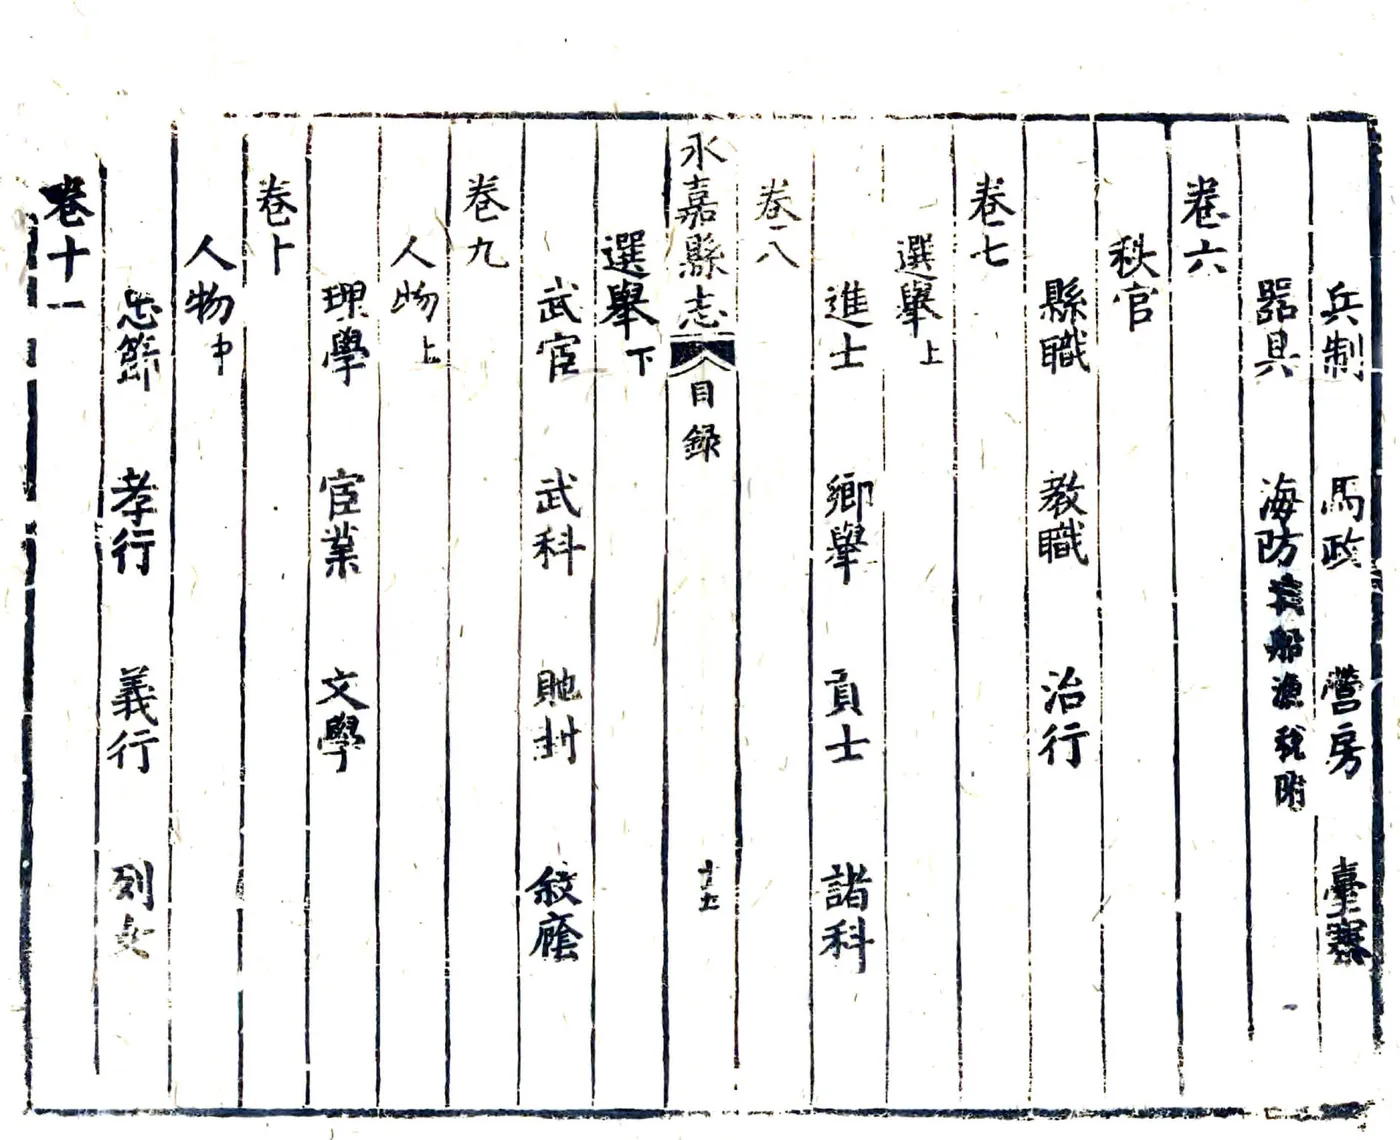 兵制　馬政　營房　臺寨
器具　海防
船漁稅附
卷六
秩官
縣職　教職　治行
卷七
選舉上
進士　鄉舉　貢士　諸科
卷八
永嘉縣志　目錄
選舉下
武宦　武科　貤封　敘廕
卷九
人物上
理學　宦業　文學
卷十
人物中
忠節　孝行　義行　列女
卷十一